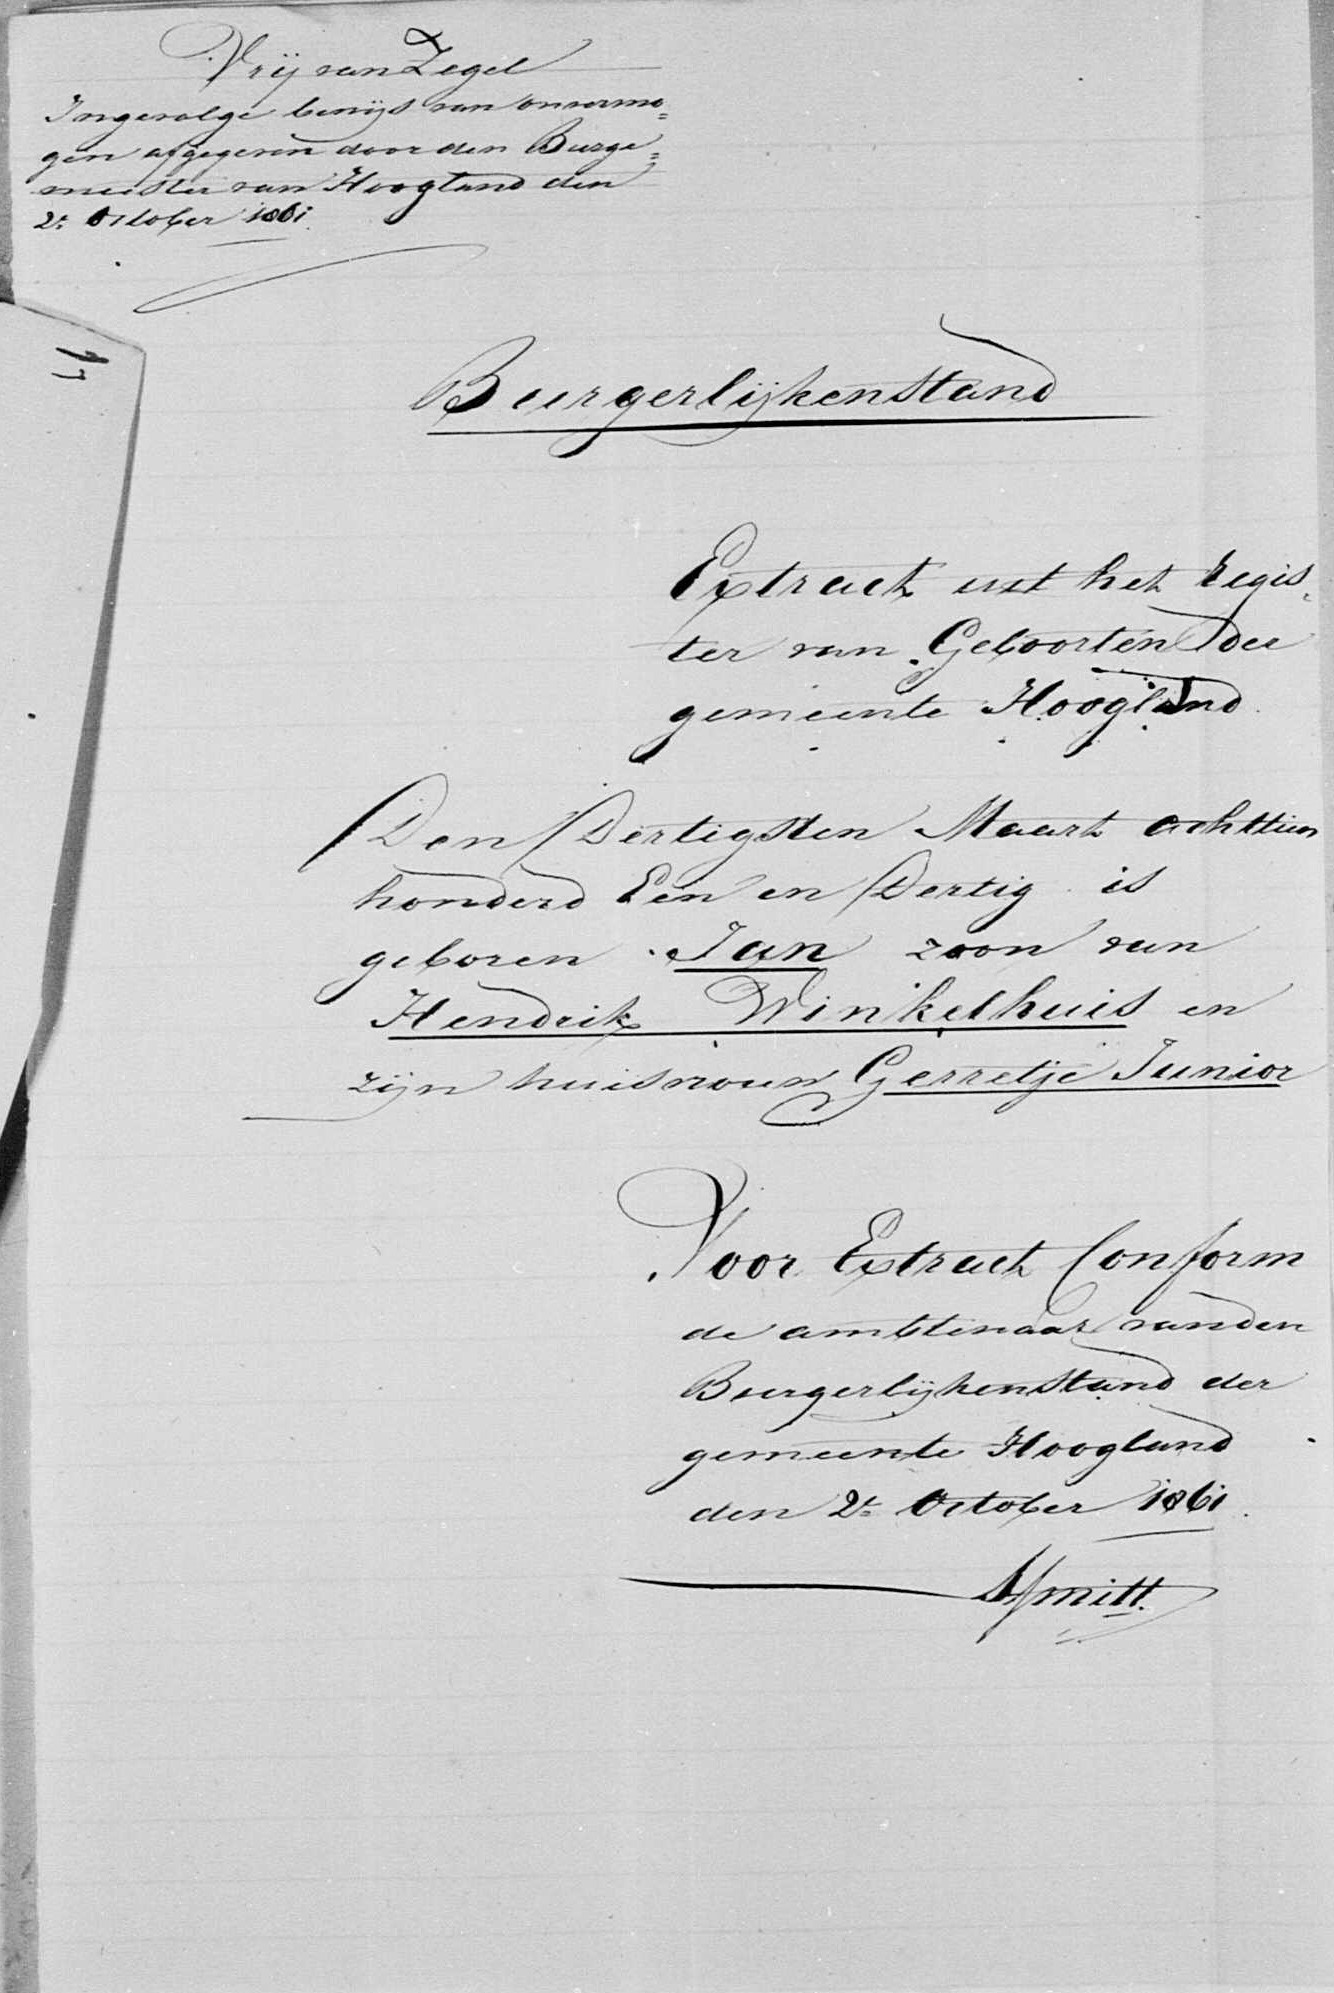 Vrij van Zegel
Ingevolge bewijs van onvermo=
gen afgegeven door den Burge=
meester van Hoogland den
2e October 1861.
17
Burgerlijkenstand
Extract uit het Regis-
ter van Geboorten der
gemeente Hoogland
Den Dertigsten Maart achttien
honderd Een en Dertig is
geboren Jan zoon van
Hendrik Winkelhuis en
zijn huisvrouw Gerretje Junior
Voor Extract Conform
de ambtenaar van den
Burgerlijkenstand der
gemeente Hoogland
den 2e October 1861.